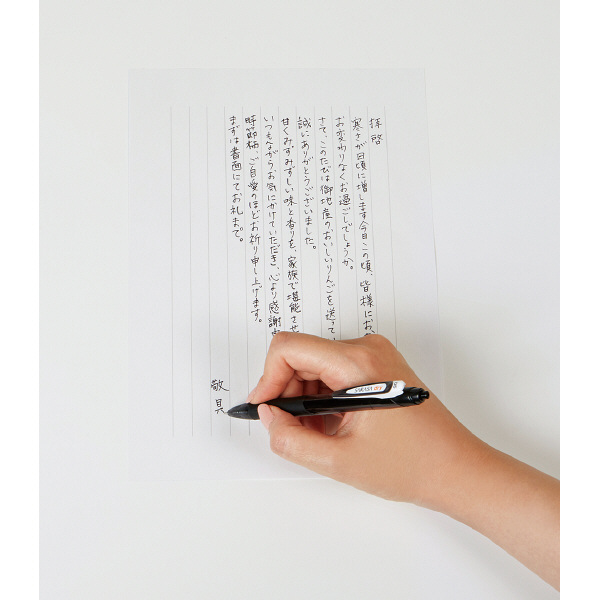 拝啓
寒さが日増しに増します今日この頃、皆様にお
お変わりなくお過ごしでしょうか。
さて、このたびは御地産のおいしいりんごを送って
誠にありがとうございました。
甘くみずみずしい味と香りを、家族で堪能させ
いつもながらお気にかけていただき、心より感謝
時節柄、ご自愛のほどお祈り申し上げます。
まずは書面にてお礼まで。
敬具
SARASA